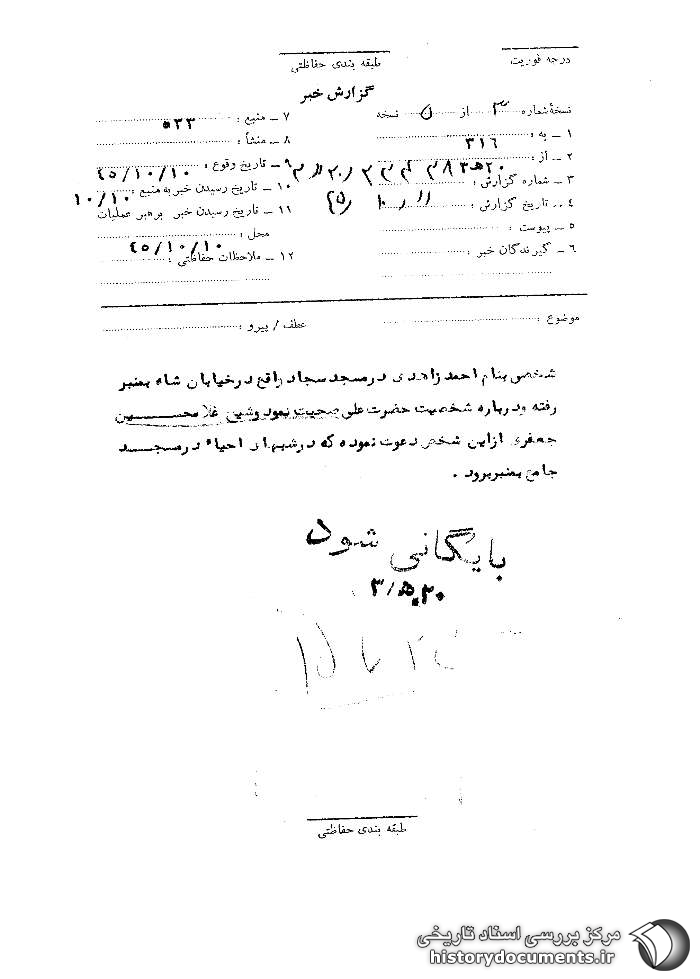 درجه فوریت
طبقه بندی حفاظتی
گزارش خبر
نسخهٔ شماره ۳ از ۵ نسخه
۱ ـ به : ۳۱۶
۲ ـ از : ۲۰ هـ ۳
۳ ـ شماره گزارش :
۴ ـ تاریخ گزارش :
۵ ـ پیوست :
۶ ـ گیرندگان خبر :
۷ ـ منبع : ۵۳۳
۸ ـ منشأ :
۹ ـ تاریخ وقوع : ۴۵/۱۰/۱۰
۱۰ ـ تاریخ رسیدن خبر به منبع : ۱۰/۱۰
۱۱ ـ تاریخ رسیدن خبر برهبر عملیات
محل : ۴۵/۱۰/۱۰
۱۲ ـ ملاحظات حفاظتی :
موضوع :
عطف / پیرو :
شخصی بنام احمد زاهدی درمسجد سجاد واقع درخیابان شاه بمنبر
رفته ودرباره شخصیت حضرت علی صحبت نمود وشیخ غلامحسین
جعفری ازاین شخص دعوت نموده که درشبهای احیاء درمسجد
جامع بمنبربرود .
بایگانی شود
۲۰ هـ ۳
طبقه بندی حفاظتی
مرکز بررسی اسناد تاریخی
historydocuments.ir